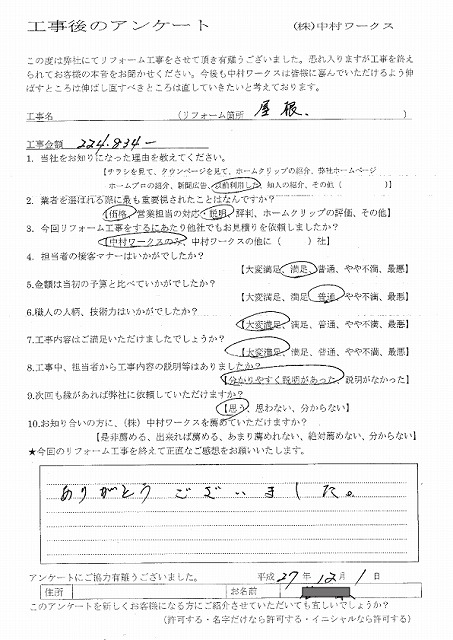 工事後のアンケート　(株)中村ワークス
この度は弊社にてリフォーム工事をさせて頂き有難うございました。恐れ入りますが工事を終え
られてお客様の本音をお聞かせください。今後も中村ワークスは皆様に喜んでいただけるよう伸
ばすところは伸ばし直すべきところは直していきたいと考えております。
工事名　(リフォーム箇所　屋根、　)
工事金額　224.834-
1. 当社をお知りになった理由を教えてください。
【チラシを見て、タウンページを見て、ホームクリップの紹介、弊社ホームページ
ホームプロの紹介、新聞広告、以前利用した、知人の紹介、その他（　）】
2. 業者を選ばれる際に最も重要視されたことはなんですか？
【価格、営業担当の対応・説明、評判、ホームクリップの評価、その他】
3. 今回リフォーム工事をするにあたり他社でもお見積りを依頼しましたか？
【中村ワークスのみ、中村ワークスの他に（　）社】
4. 担当者の接客マナーはいかがでしたか？
【大変満足、満足、普通、やや不満、最悪】
5.金額は当初の予算と比べていかがでしたか？
【大変満足、満足、普通、やや不満、最悪】
6.職人の人柄、技術力はいかがでしたか？
【大変満足、満足、普通、やや不満、最悪】
7.工事内容はご満足いただけましたでしょうか？
【大変満足、満足、普通、やや不満、最悪】
8.工事中、担当者から工事内容の説明等はありましたか？
【分かりやすく説明があった、説明がなかった】
9.次回も縁があれば弊社に依頼していただけますか？
【思う、思わない、分からない】
10.お知り合いの方に、（株）中村ワークスを薦めていただけますか？
【是非薦める、出来れば薦める、あまり薦めれない、絶対薦めない、分からない】
★今回のリフォーム工事を終えて正直なご感想をお願いいたします。
ありがとうございました。
アンケートにご協力有難うございました。　平成 27 年 12 月 1 日
住所　お名前
このアンケートを新しくお客様になる方にご紹介させていただいても宜しいでしょうか？
(許可する・名字だけなら許可する・イニシャルなら許可する)